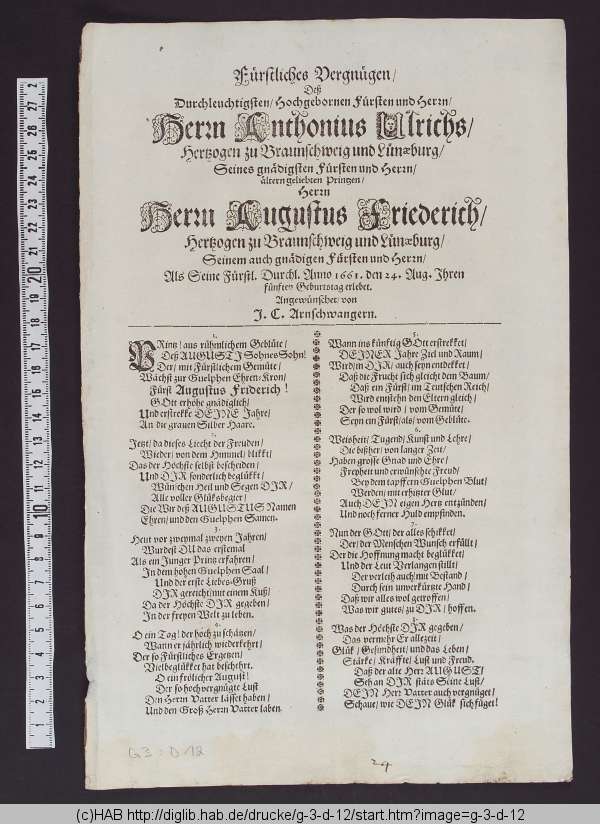 Fürstliches Vergnügen/
Deß
Durchleuchtigsten/ Hochgebornen Fürsten und Herrn/
Herrn Anthonius Ulrichs/
Hertzogen zu Braunschweig und Lünæburg/
Seines gnädigsten Fürsten und Herrn/
ältern geliebten Printzen/
Herrn
Herrn Augustus Friederich/
Hertzogen zu Braunschweig und Lünæburg/
Seinem auch gnädigen Fürsten und Herrn/
Als Seine Fürstl. Durchl. Anno 1661. den 24. Aug. Ihren
fünften Geburtstag erlebet.
Angewünschet von
J. C. Arnschwangern.
1.
PRintz/ aus rühmlichem Geblüte/
Deß AUGUSTJ Sohnes Sohn!
Der/ mit Fürstlichem Gemüte/
Wächst zur Guelphen Ehren-Kron/
Fürst Augustus Friderich!
GOtt erhöhe gnädiglich/
Und erstrekke DEJNE Jahre/
An die grauen Silber Haare.
2.
Jetzt/ da dieses Liecht der Freuden/
Wieder/ von dem Himmel/ blikkt/
Das der Höchste selbst bescheiden/
Und DJR sonderlich beglükkt/
Wünschen Heil und Segen DJR/
Alle voller Glüksbegier/
Die Wir deß AUGUSTUS Namen
Ehren/ und den Guelphen Samen.
3.
Heut vor zweymal zweyen Jahren/
Wurdest DU das erstemal
Als ein Junger Printz erfahren/
In dem hohen Guelphen Saal/
Und der erste Liebes-Gruß
DJR gereicht/ mit einem Kuß/
Da der Höchste DJR gegeben/
In der freyen Welt zu leben.
4.
O ein Tag! der hoch zu schätzen/
Wann er jährlich wiederkehrt/
Der so Fürstliches Ergetzen/
Vielbeglükket hat beschehrt.
O ein frölicher August!
Der so hochvergnügte Lust
Den Herrn Vatter lässet haben/
Und den Groß Herrn Vatter laben.
5.
Wann ins künftig GOtt erstrekket/
DEJNER Jahre Ziel und Raum/
Wird/ in DJR/ auch seyn entdekket/
Daß die Frucht sich gleicht dem Baum/
Daß ein Fürst/ im Teutschen Reich/
Wird entstehn den Eltern gleich/
Der so wol wird/ vom Gemüte/
Seyn ein Fürst/ als/ vom Geblüte.
6.
Weisheit/ Tugend/ Kunst und Lehre/
Die bißher/ von langer Zeit/
Haben grosse Gnad und Ehre/
Freyheit und erwünschte Freud/
Bey dem tapffern Guelphen Blut/
Werden/ mit erhitzter Glut/
Auch DEJN eigen Hertz entzünden/
Und noch ferner Huld empfinden.
7.
Nun der GOtt/ der alles schikket/
Der/ der Menschen Wunsch erfüllt/
Der die Hoffnung macht beglükket/
Und der Leut Verlangen stillt/
Der verleih auch/ mit Bestand/
Durch sein unverkürtzte Hand/
Daß wir alles wol getroffen/
Was wir gutes/ zu DJR/ hoffen.
8.
Was der Höchste DJR gegeben/
Das vermehr Er allezeit/
Glük/ Gesundheit/ und das Leben/
Stärke/ Kräffte/ Lust und Freud.
Daß der alte Herr AUGUST/
Seh an DJR stäts Seine Lust/
DEJN Herr Vatter auch vergnüget/
Schaue/ wie DEJN Glük sich füget!
G3 : D 12
24
(c)HAB http://diglib.hab.de/drucke/g-3-d-12/start.htm?image=g-3-d-12